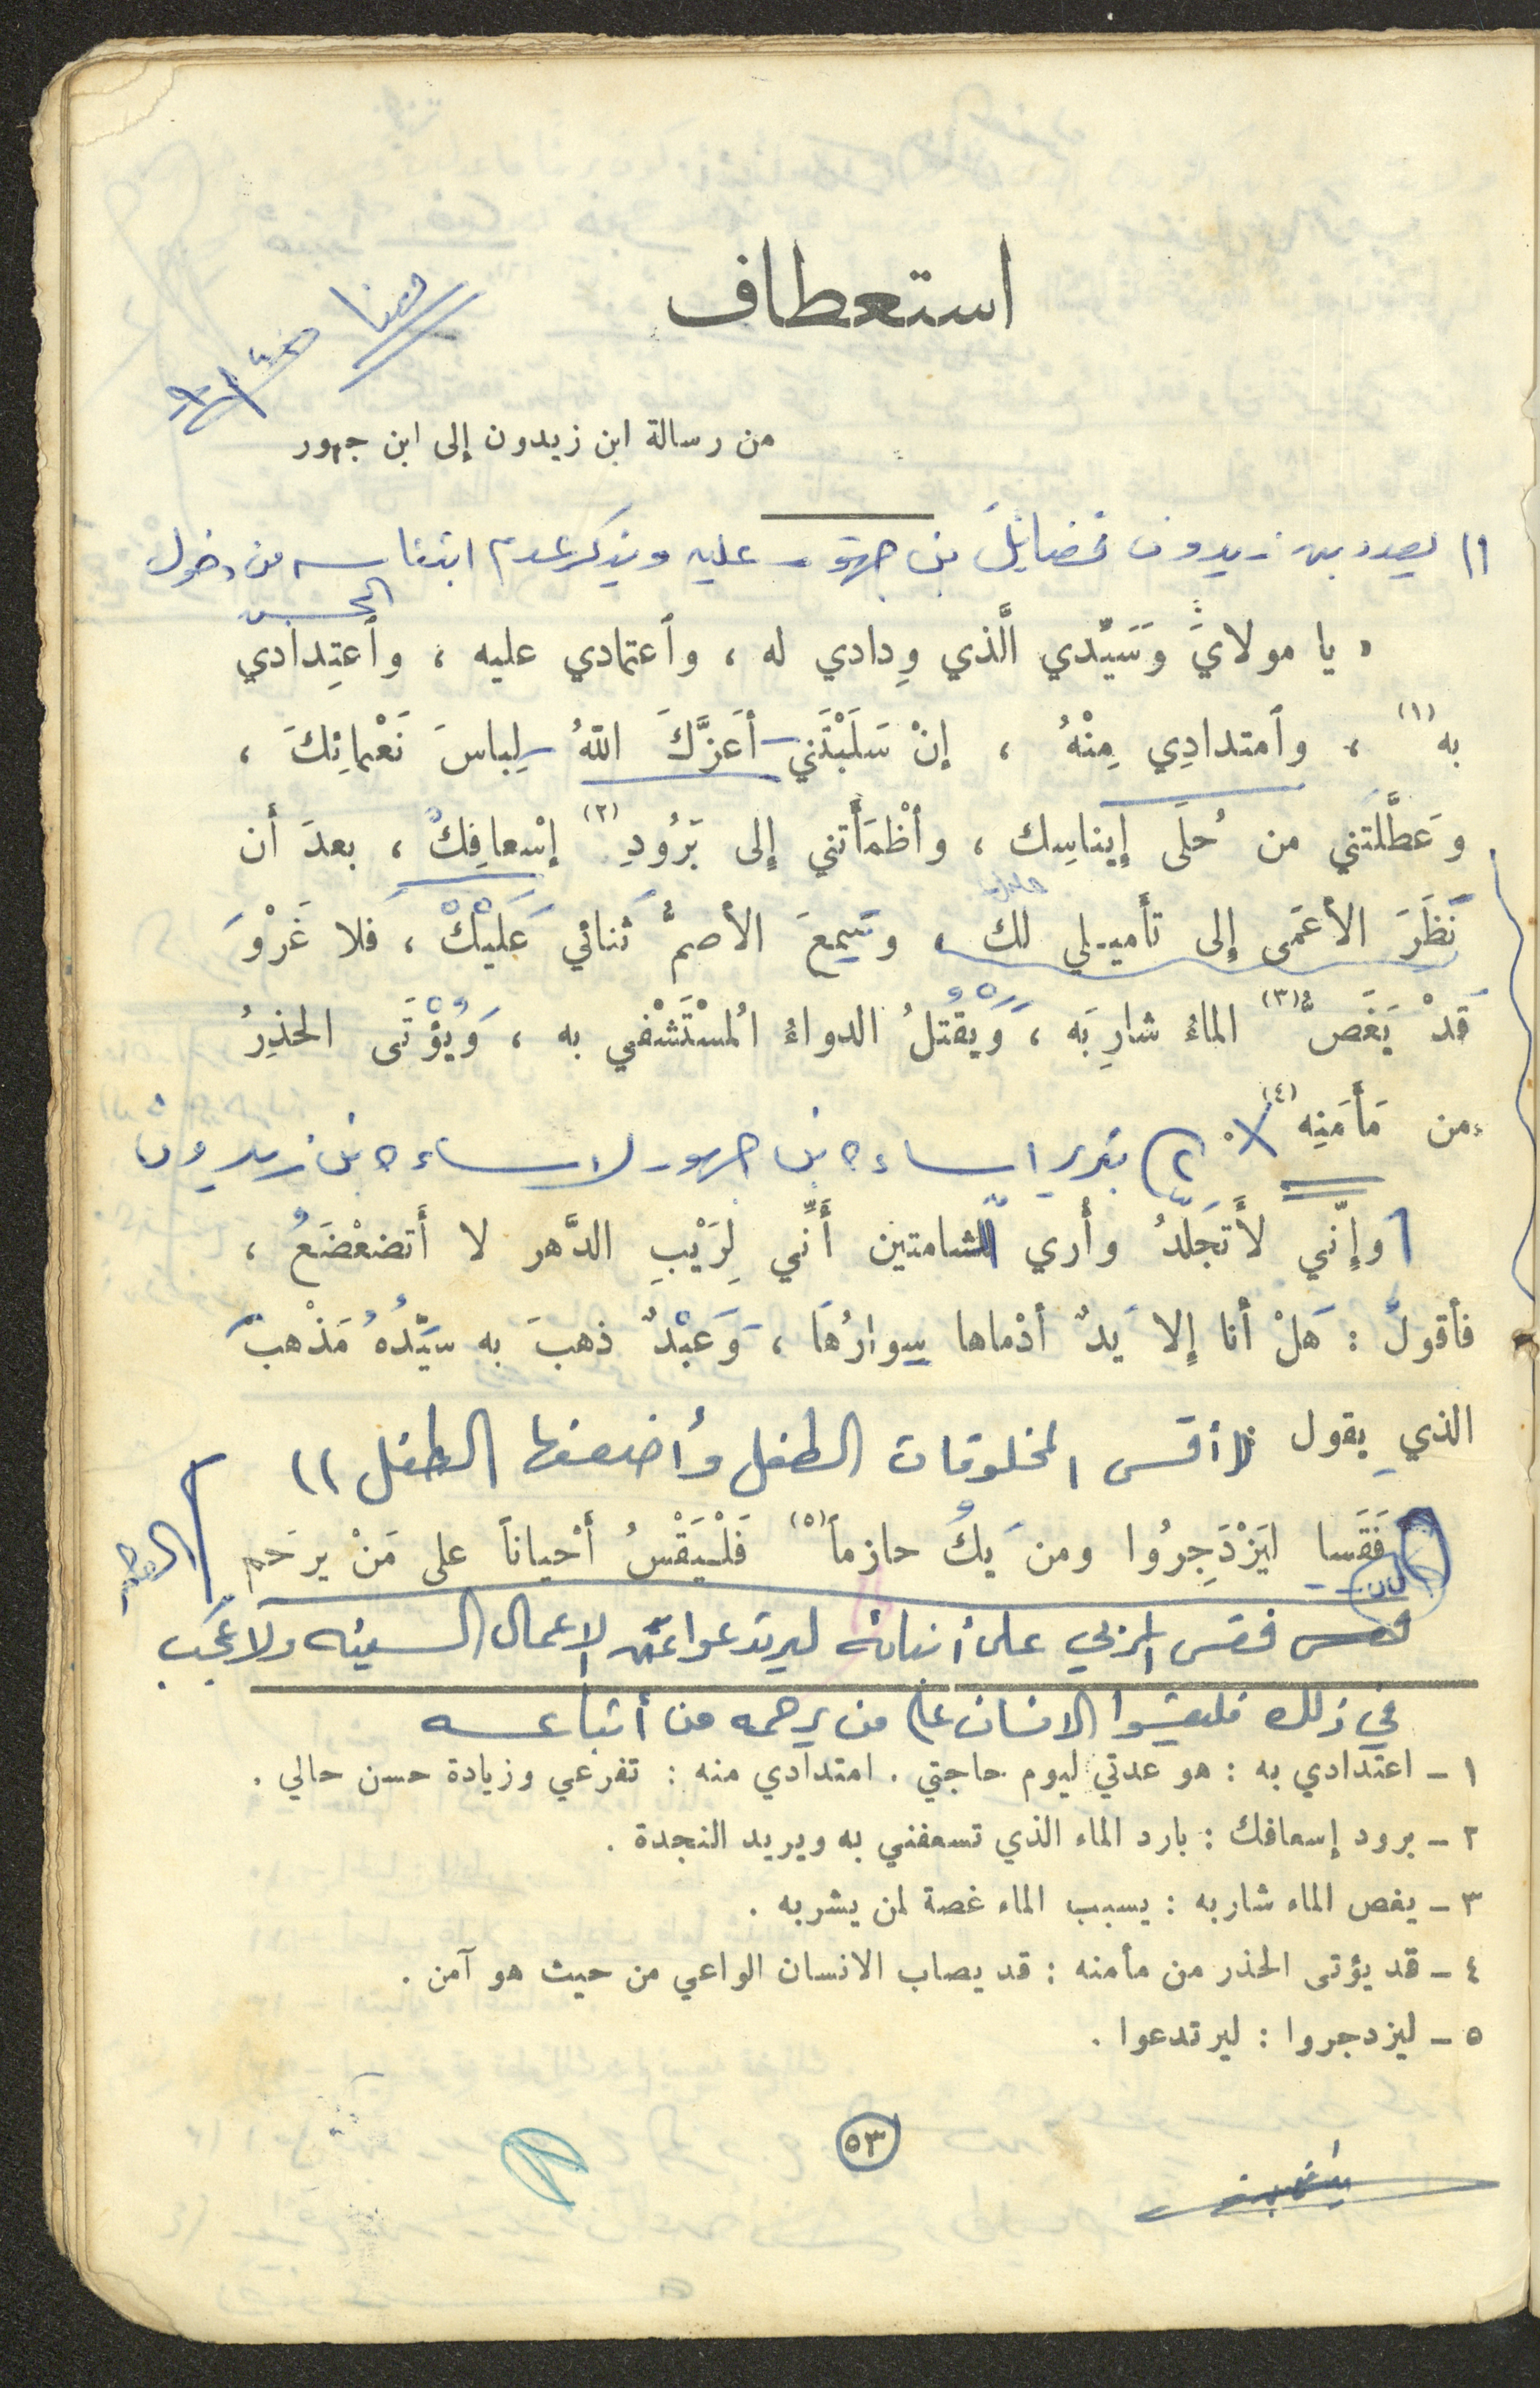 استعطاف
هنا
من رسالة ابن زيدون إلى ابن جهور
١) يعدد بن زيدون فضائلَ بن جهور عليه ويذكر عدم ابتئاسه من دخول
الحبس
« يا مولايَ وَسَيِّدي الَّذي وِدادي له ، وٱعتمادي عليه ، وٱعتِدادي
به (١) ، وٱمتدادِي مِنْهُ ، إنْ سَلَبْتَني – أَعَزَّكَ اللهُ – لِباسَ نَعْمائِكَ ،
وَعَطَّلْتَني من حُلَى إيناسِك ، وأظْمَأْتني إلى بَرُودِ (٢) إسْعافِكَ ، بعدَ أن
نَظَرَ الأعمَى إلى تأميلي لك ، وسَمِعَ الأصمُّ ثَنائي عَلَيْكَ ، فَلا غَرْوَ
قَدْ يَغَصُّ (٣) الماءُ شارِبَه ، وَيَقْتلُ الدواءُ المُسْتَشْفي به ، وَيُؤْتَى الحذِرُ
من مَأمَنِه (٤) .
٢) تبرير اساءة بن جهور لاساءة بن زيدون
وإنّي لأَتَجَلَّدُ وأُري للشامتين أَنِّي لِرَيْبِ الدَّهر لا أَتضعْضَعُ ،
فأقولُ : هَلْ أنا إلا يَدٌ أدْماها سِوارُهَا ، وَعَبْدٌ ذهبَ به سَيِّدُهُ مَذْهبَ
الذي يقول :
(( أقسى المخلوقات الطفل وأضعفها الطفل ))
فَقَسا ليَزْدَجِرُوا ومن يَكُ حازماً (٥) فَلْيَقْسُ أحْياناً على مَنْ يرحَم
فقسى المربي على أبنائه ليرتدعوا عن الاعمال السيئه ولا عجب
في ذلك فليقسوا الانسان على من يرحمه من أتباعه
١ – اعتدادي به : هو عدتي ليوم حاجتي . امتدادي منه : تفرعي وزيادة حسن حالي .
٢ – برود إسعافك : بارد الماء الذي تسعفني به ويريد النجدة .
٣ – يغص الماء شاربه : يسبب الماء غصة لمن يشربه .
٤ – قد يؤتى الحذر من مأمنه : قد يصاب الانسان الواعي من حيث هو آمن .
٥ – ليزدجروا : ليرتدعوا .
٥٣